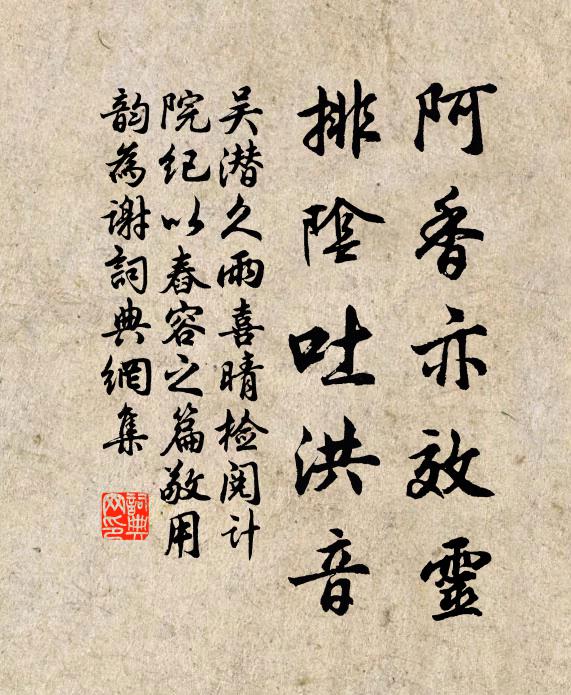 阿香亦效靈
排陰吐洪音
吴潜久雨喜晴检阅计
院纪以舂容之篇敬用
韵為谢詞典網集
詞典網印